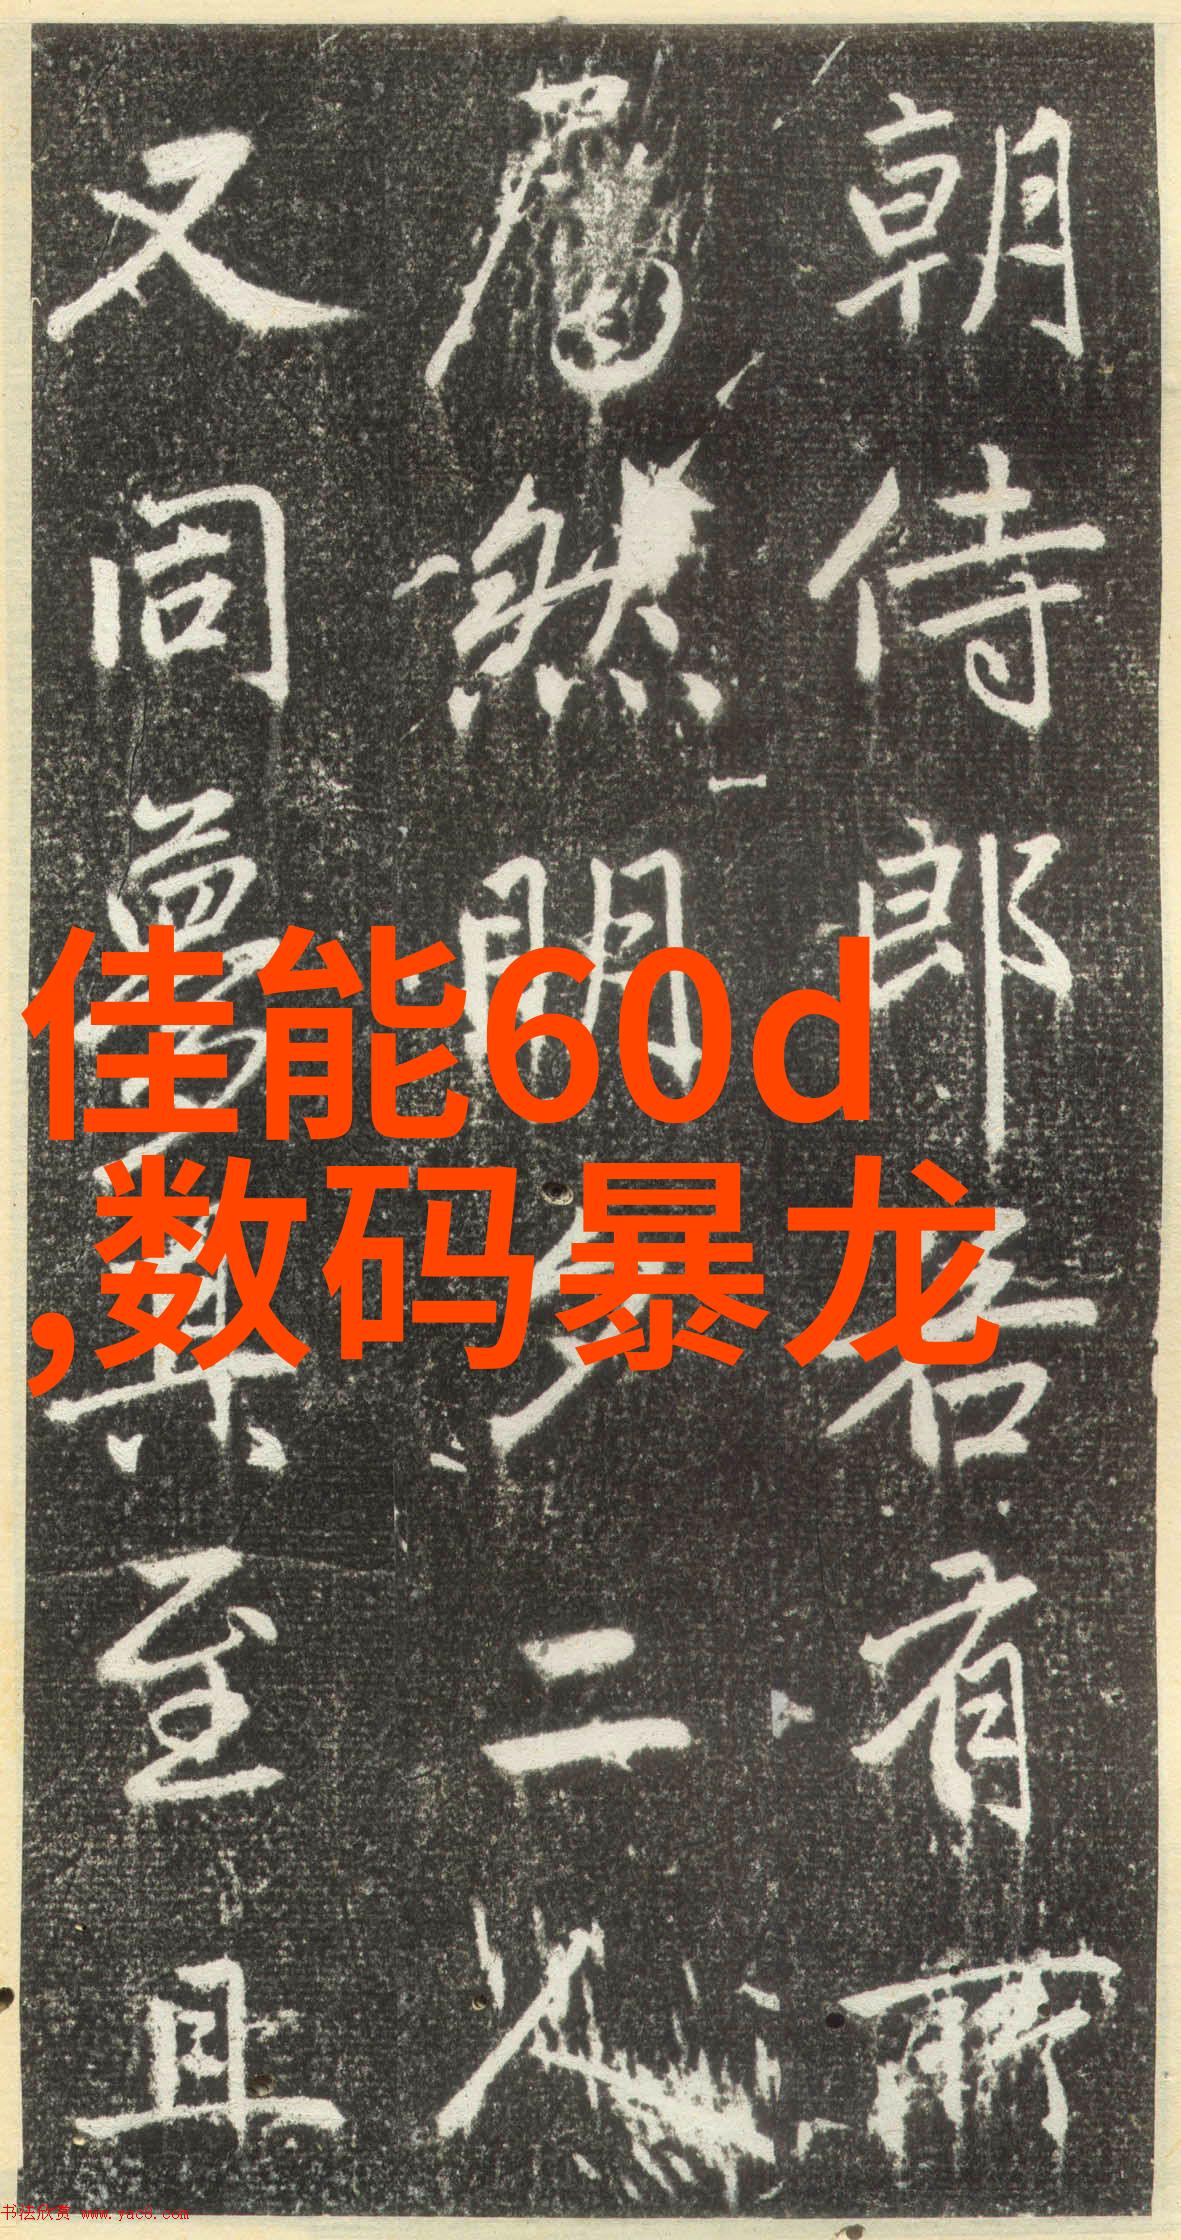 朝侍郎君有所
然明 二人
又同 至且
佳能60d
,数码暴龙
书法欣赏 www.yac8.com